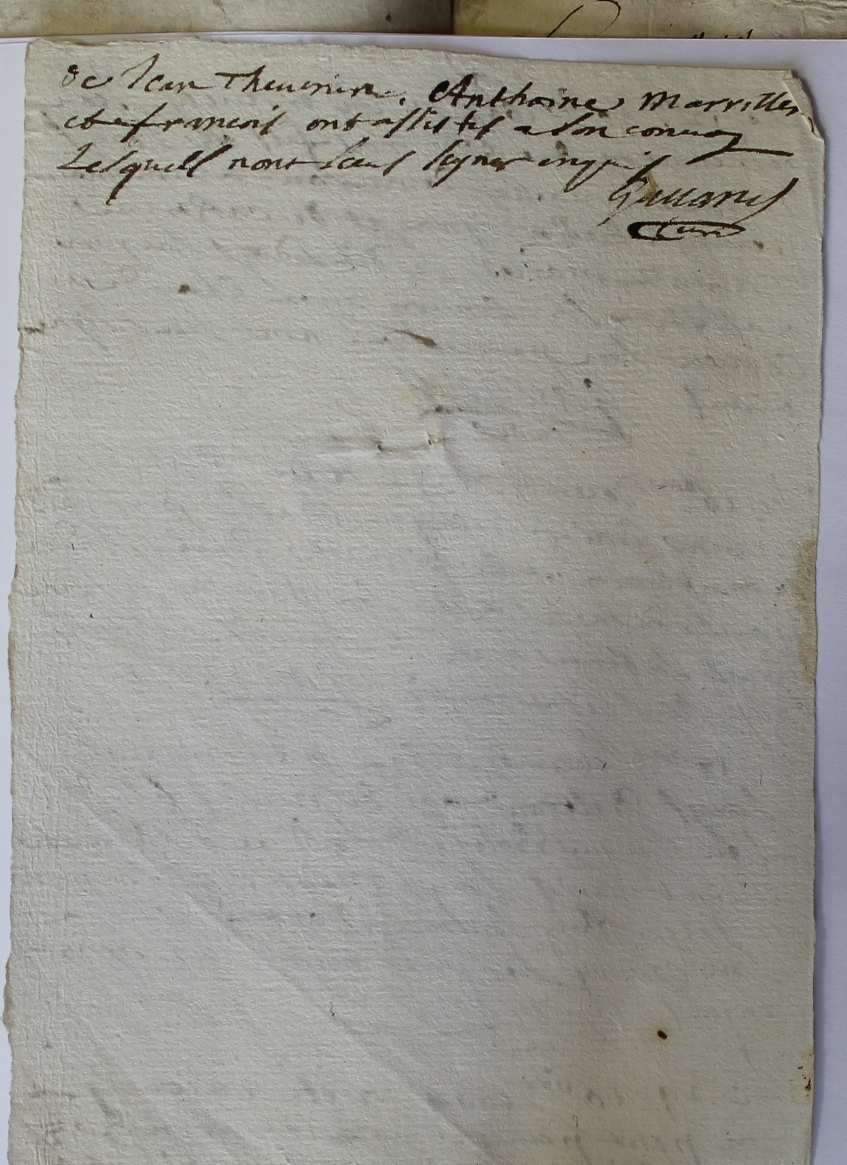 de Jean Thevenin. Anthoine Marvillier
et francois ont assistes a son convoy
Lesquels nont sceus signer enquis
curé